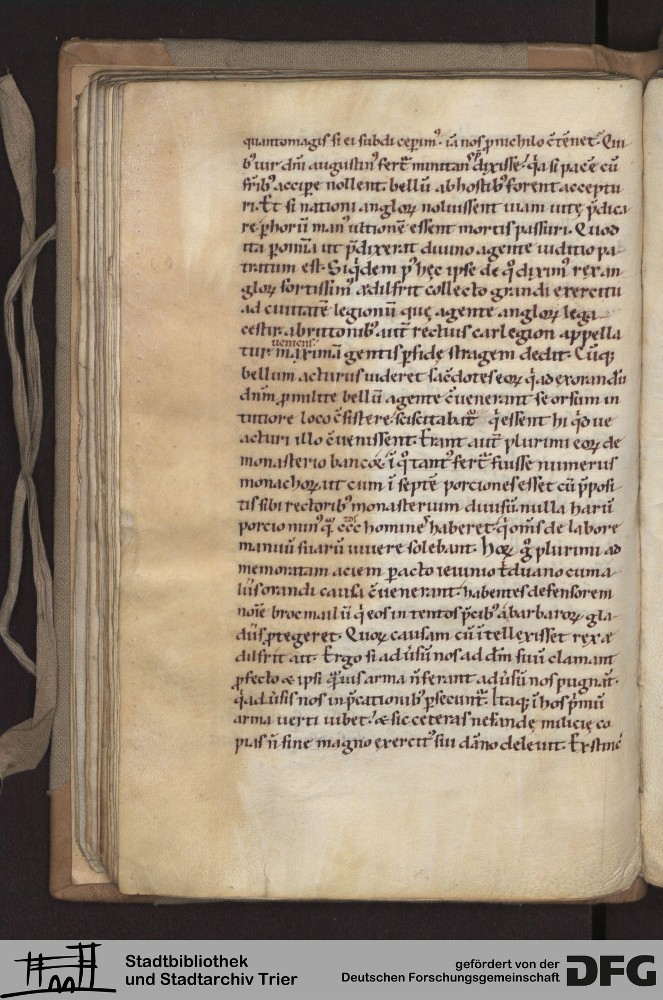 quantomagis si ei subdi ceperim᷒. iā nos p nichilo c̄tēnet. Qui
b᷒ uir dn̄i augustin᷒ fert᷑ minitans p̄dixisse. q̇a si pacē cū
fr̄ib᷒ accipe nollent. bellū ab hostib᷒ forent acceptu
ri. Et si nationi angloꝝ noluissent uiam uitę p̄dica
re. p horū man᷒ ultionē essent mortis passuri. Quod
ita p omīa ut p̄dixerat diuino agente iuditio pa
tratum est. Siq̇dem p᷒ hęc ipse de q̊ dixim᷒ rex an
gloꝝ fortissim᷒ ædilfrit collecto grandi exercitu
ad ciuitatē legionū quę agente angloꝝ lega
cestir. a brittonib᷒ aut̄ rectius carlegion appella
tur ueniens maximā gentis pfidę stragem dedit. Cūq;
bellum acturus uideret sac̄dotes eoꝝ q̇ ad exorandū
dn̄m p milite bellū agente c̄uenerant seorsum in
tutiore loco c̄sistere. sciscitabat᷑ q̇ essent hi q̇d ue
acturi illo c̄uenissent. Erant aut̄ plurimi eoꝝ de
monasterio bancor. ī q̊ tant᷒ fert᷑ fuisse numerus
monachoꝝ. ut cum ī septē porciones esset cū p̄posi
tis sibi rectorib᷒ monasterium diuisū. nulla harū
porcio min᷒ q̄ ccc tos homines haberet. q̇ om̄s de labore
manuū suarū uiuere solebant. Hoꝝ g̊ plurimi ad
memoratam aciem pacto ieiunio tduano cum a
liis orandi causa c̄uenerant. habentes defensorem
noīe brocmailū q̇ eos intentos p̄cib᷒ a barbaroꝝ gla
diis ptegeret. Quoꝝ causam cū ītellexisset rex æ
dilfrit ait. Ergo si aduˀsū nos ad dm̄ suū clamant
pfecto & ipsi q̄uis arma n̄ ferant aduˀsū nos pugnāt.
q̇ aduˀsis nos inp̄cationib᷒ psecunt᷑. Itaq; ī hos p̄mū
arma uerti iubet. & sic ceteras nefandę milicię co
pias n̄ sine magno exercit᷒ sui dāno deleuit. Exstinc̄
Stadtbibliothek
und Stadtarchiv Trier
gefördert von der
Deutschen Forschungsgemeinschaft
DFG